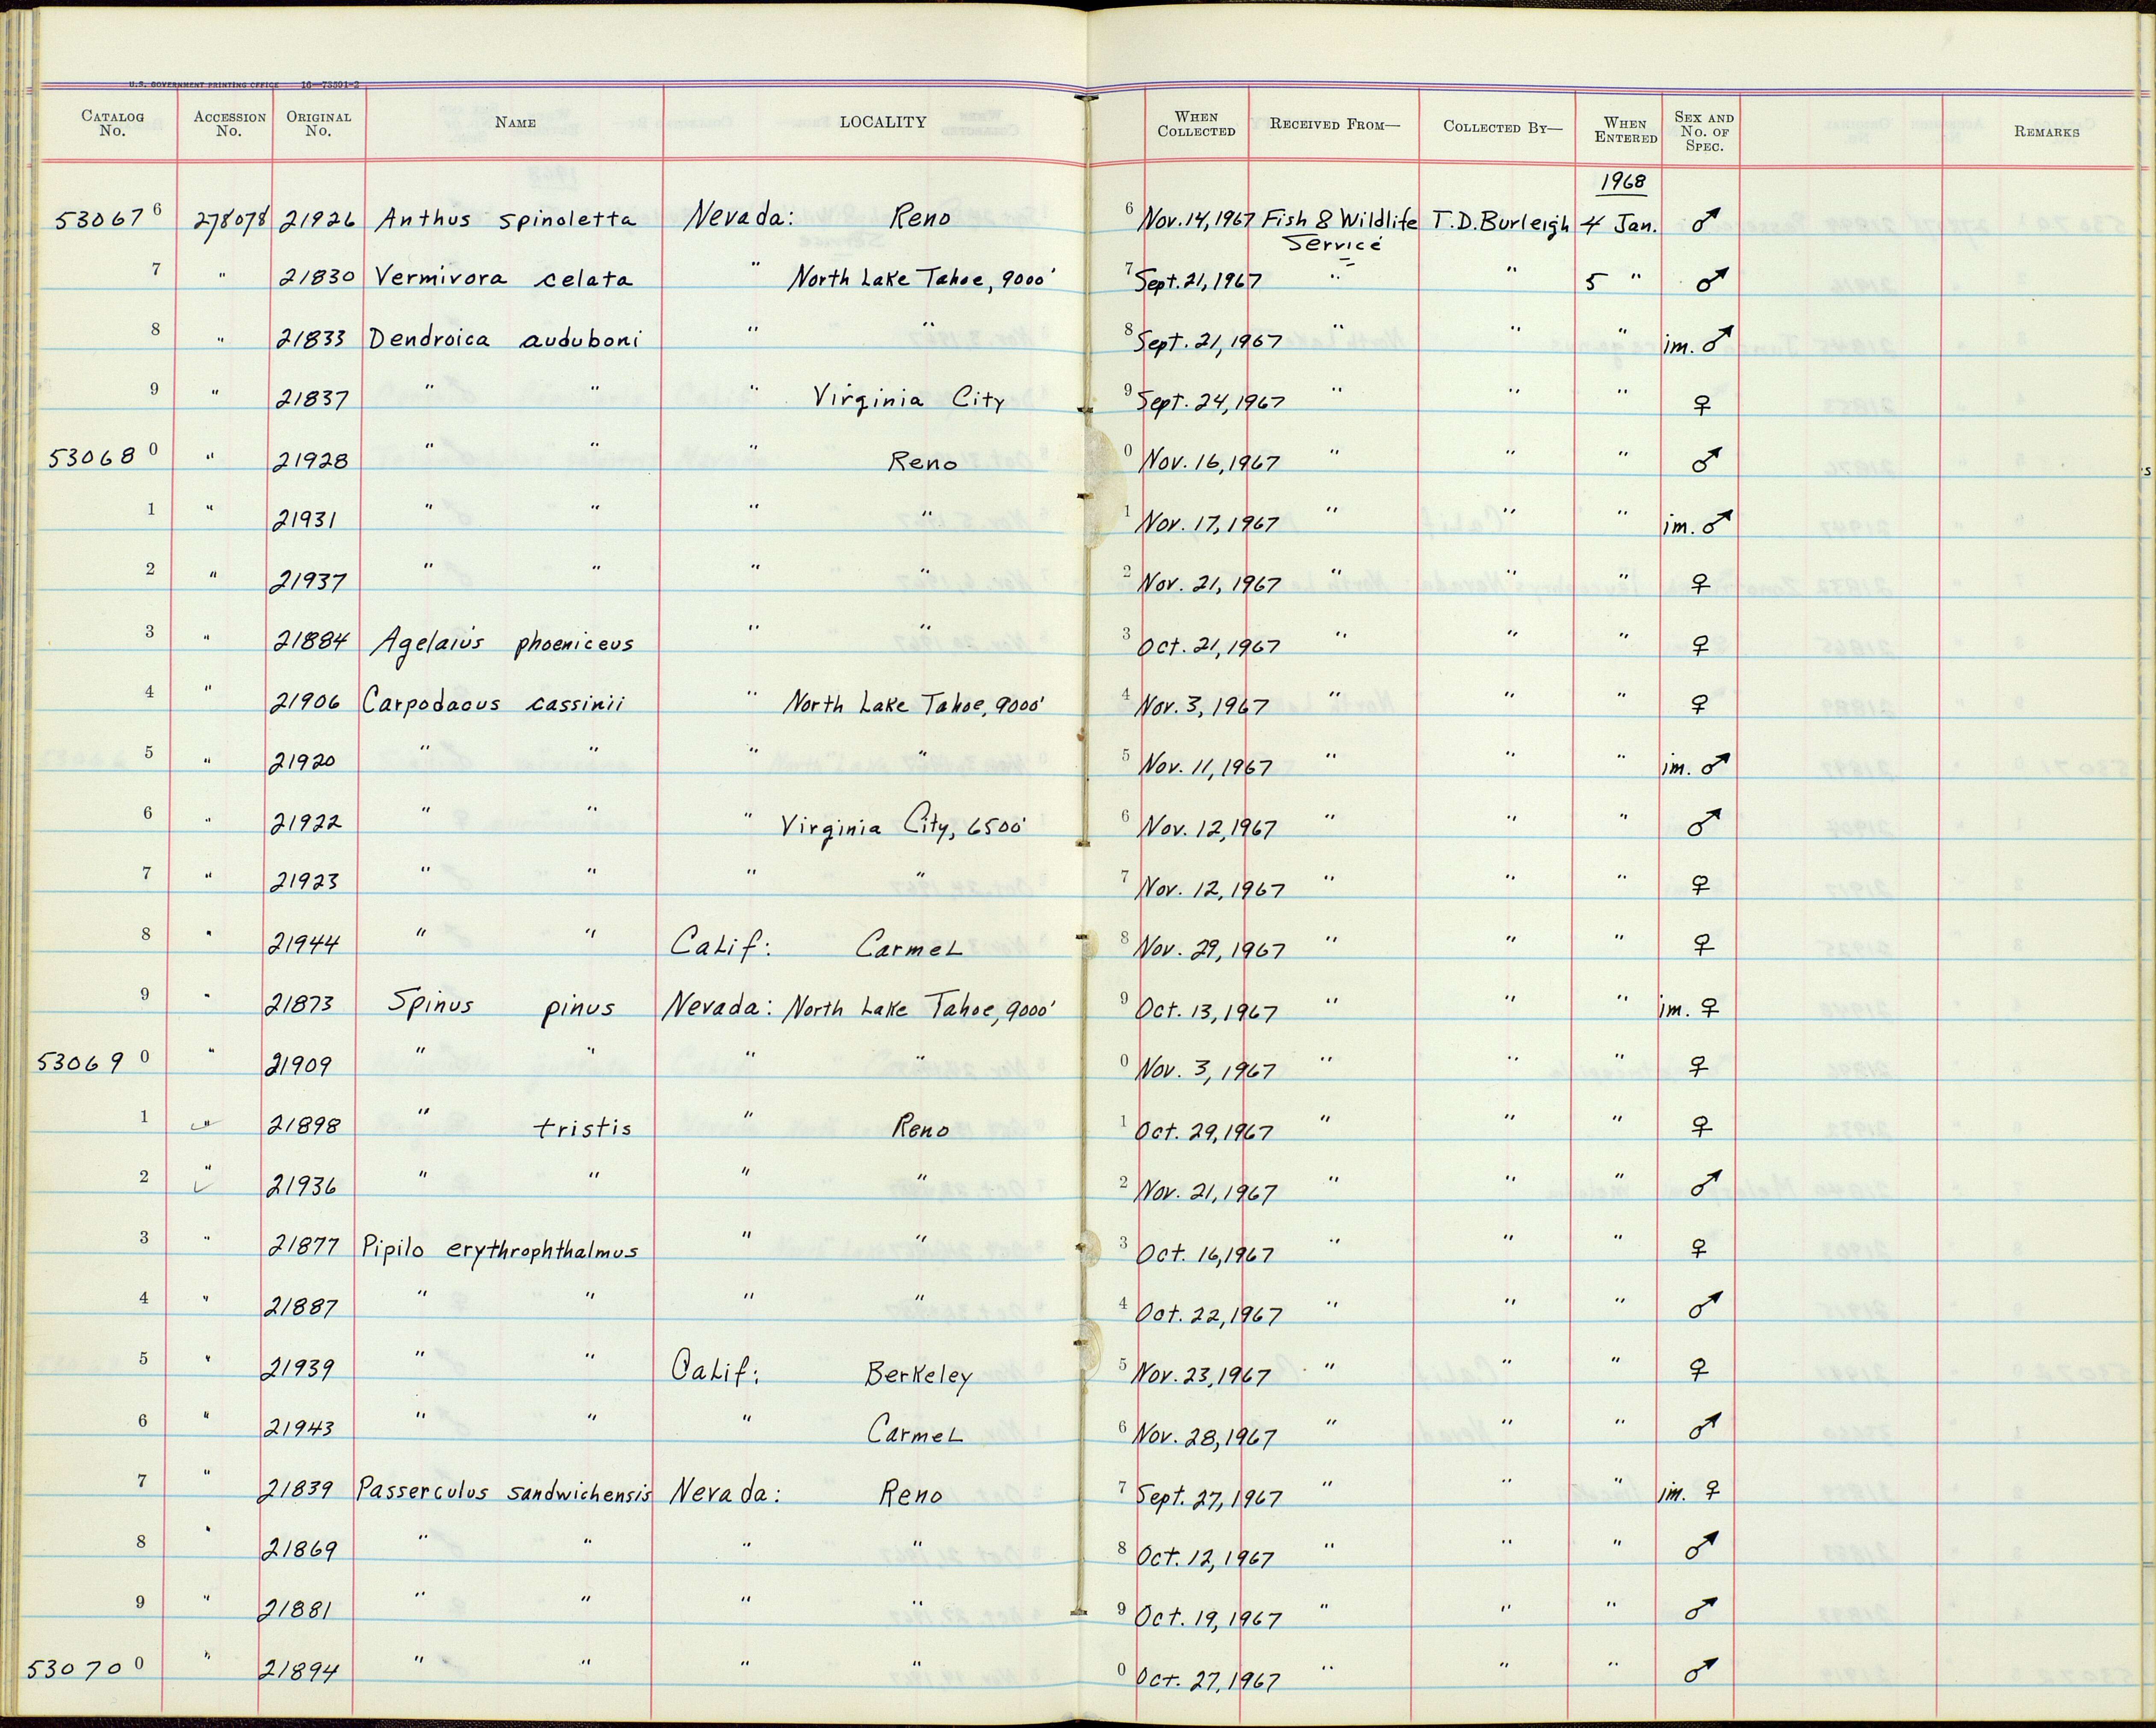 U.S. GOVERNMENT PRINTING OFFICE 16—73501-2
CATALOG No. ACCESSION No. ORIGINAL No. NAME LOCALITY WHEN COLLECTED RECEIVED FROM— COLLECTED BY— WHEN ENTERED SEX AND No. OF SPEC. REMARKS
1968
53067 6 278078 21926 Anthus spinoletta Nevada: Reno 6 Nov. 14, 1967 Fish & Wildlife Service T.D. Burleigh 4 Jan. ♂
7 " 21830 Vermivora celata " North Lake Tahoe, 9000' 7 Sept. 21, 1967 " " 5 " ♂
8 " 21833 Dendroica auduboni " " 8 Sept. 21, 1967 " " " im. ♂
9 " 21837 " " " Virginia City 9 Sept. 24, 1967 " " " ♀
53068 0 " 21928 " " " Reno 0 Nov. 16, 1967 " " " ♂
1 " 21931 " " " " 1 Nov. 17, 1967 " " " im. ♂
2 " 21937 " " " " 2 Nov. 21, 1967 " " " ♀
3 " 21884 Agelaius phoeniceus " " 3 Oct. 21, 1967 " " " ♀
4 " 21906 Carpodacus cassinii " North Lake Tahoe, 9000' 4 Nov. 3, 1967 " " " ♀
5 " 21920 " " " " 5 Nov. 11, 1967 " " " im. ♂
6 " 21922 " " " Virginia City, 6500' 6 Nov. 12, 1967 " " " ♂
7 " 21923 " " " " 7 Nov. 12, 1967 " " " ♀
8 " 21944 " " Calif: Carmel 8 Nov. 29, 1967 " " " ♀
9 " 21873 Spinus pinus Nevada: North Lake Tahoe, 9000' 9 Oct. 13, 1967 " " " im. ♀
53069 0 " 21909 " " " " 0 Nov. 3, 1967 " " " ♀
1 " 21898 " tristis " Reno 1 Oct. 29, 1967 " " " ♀
2 " 21936 " " " " 2 Nov. 21, 1967 " " " ♂
3 " 21877 Pipilo erythrophthalmus " " 3 Oct. 16, 1967 " " " ♀
4 " 21887 " " " " 4 Oct. 22, 1967 " " " ♂
5 " 21939 " " Calif: Berkeley 5 Nov. 23, 1967 " " " ♀
6 " 21943 " " " Carmel 6 Nov. 28, 1967 " " " ♂
7 " 21839 Passerculus sandwichensis Nevada: Reno 7 Sept. 27, 1967 " " " im. ♀
8 " 21869 " " " " 8 Oct. 12, 1967 " " " ♂
9 " 21881 " " " " 9 Oct. 19, 1967 " " " ♂
53070 0 " 21894 " " " " 0 Oct. 27, 1967 " " " ♂